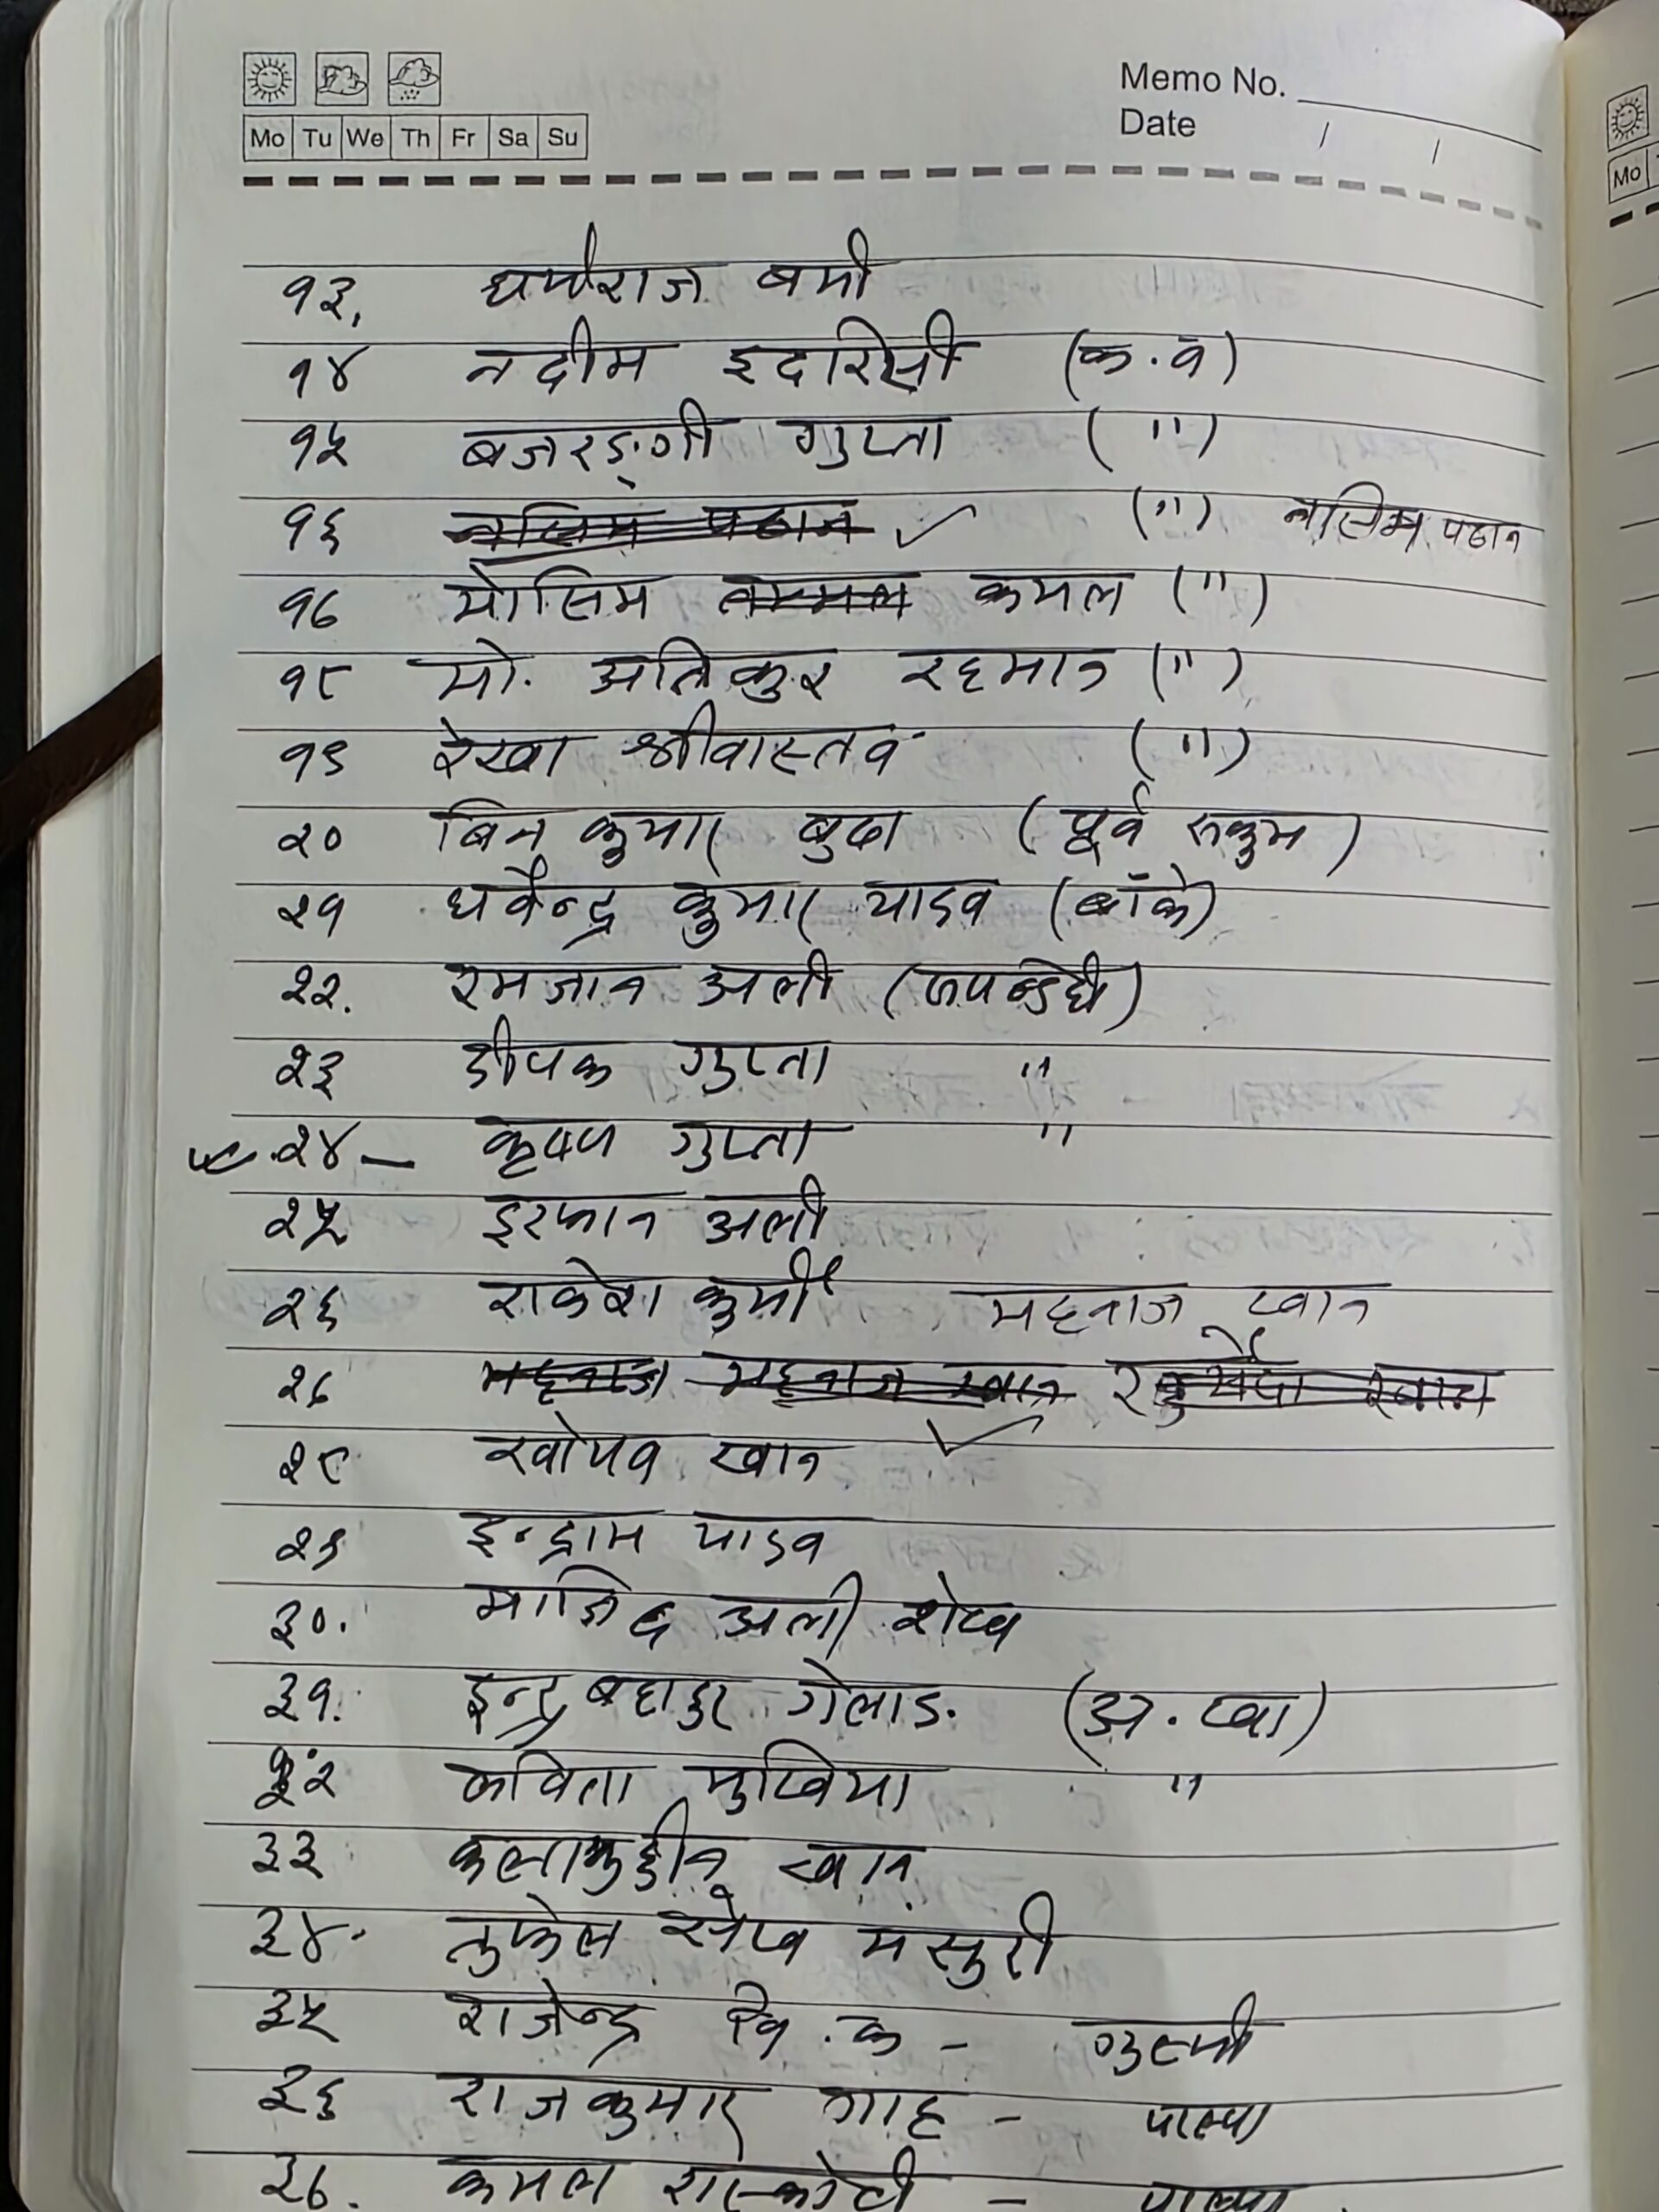 Memo No.
Mo Tu We Th Fr Sa Su
Date / /
१३. धर्मराज बर्मा
१४ नदीम इदरिसी (क.व)
१५ बजरङ्गी गुप्ता (")
१६ नसिम पठान (") नसिम पठान
१७ मोसिम कमल (")
१८ मो. अतिकुर रहमान (")
१९ रेखा श्रीवास्तव (")
२० बिन कुमार बुढा (पूर्व रुकुम)
२१ धर्वेन्द्र कुमार यादव (बाँके)
२२. रमजान अली (रुपन्देही)
२३ दीपक गुप्ता "
२४ – कृष्ण गुप्ता "
२५ इरफान अली
२६ राकेश कुर्मी महनाज खान
२७ महनाज महनाज खान खान
२८ स्वोयव खान
२९ इन्द्राम यादव
३०. माजिद अली शेख
३१. इन्द्र बहादुर गेलाङ. (अ.खा)
३२ कविता मुखिया "
३३ कलामुद्दीन खान
३४. तुफेल सेख मंसुरी
३५ राजेन्द्र वि.क – गुल्मी
३६ राजकुमार गाह – पाल्पा
३७. कमल रास्कोटी – पाल्पा
Mo